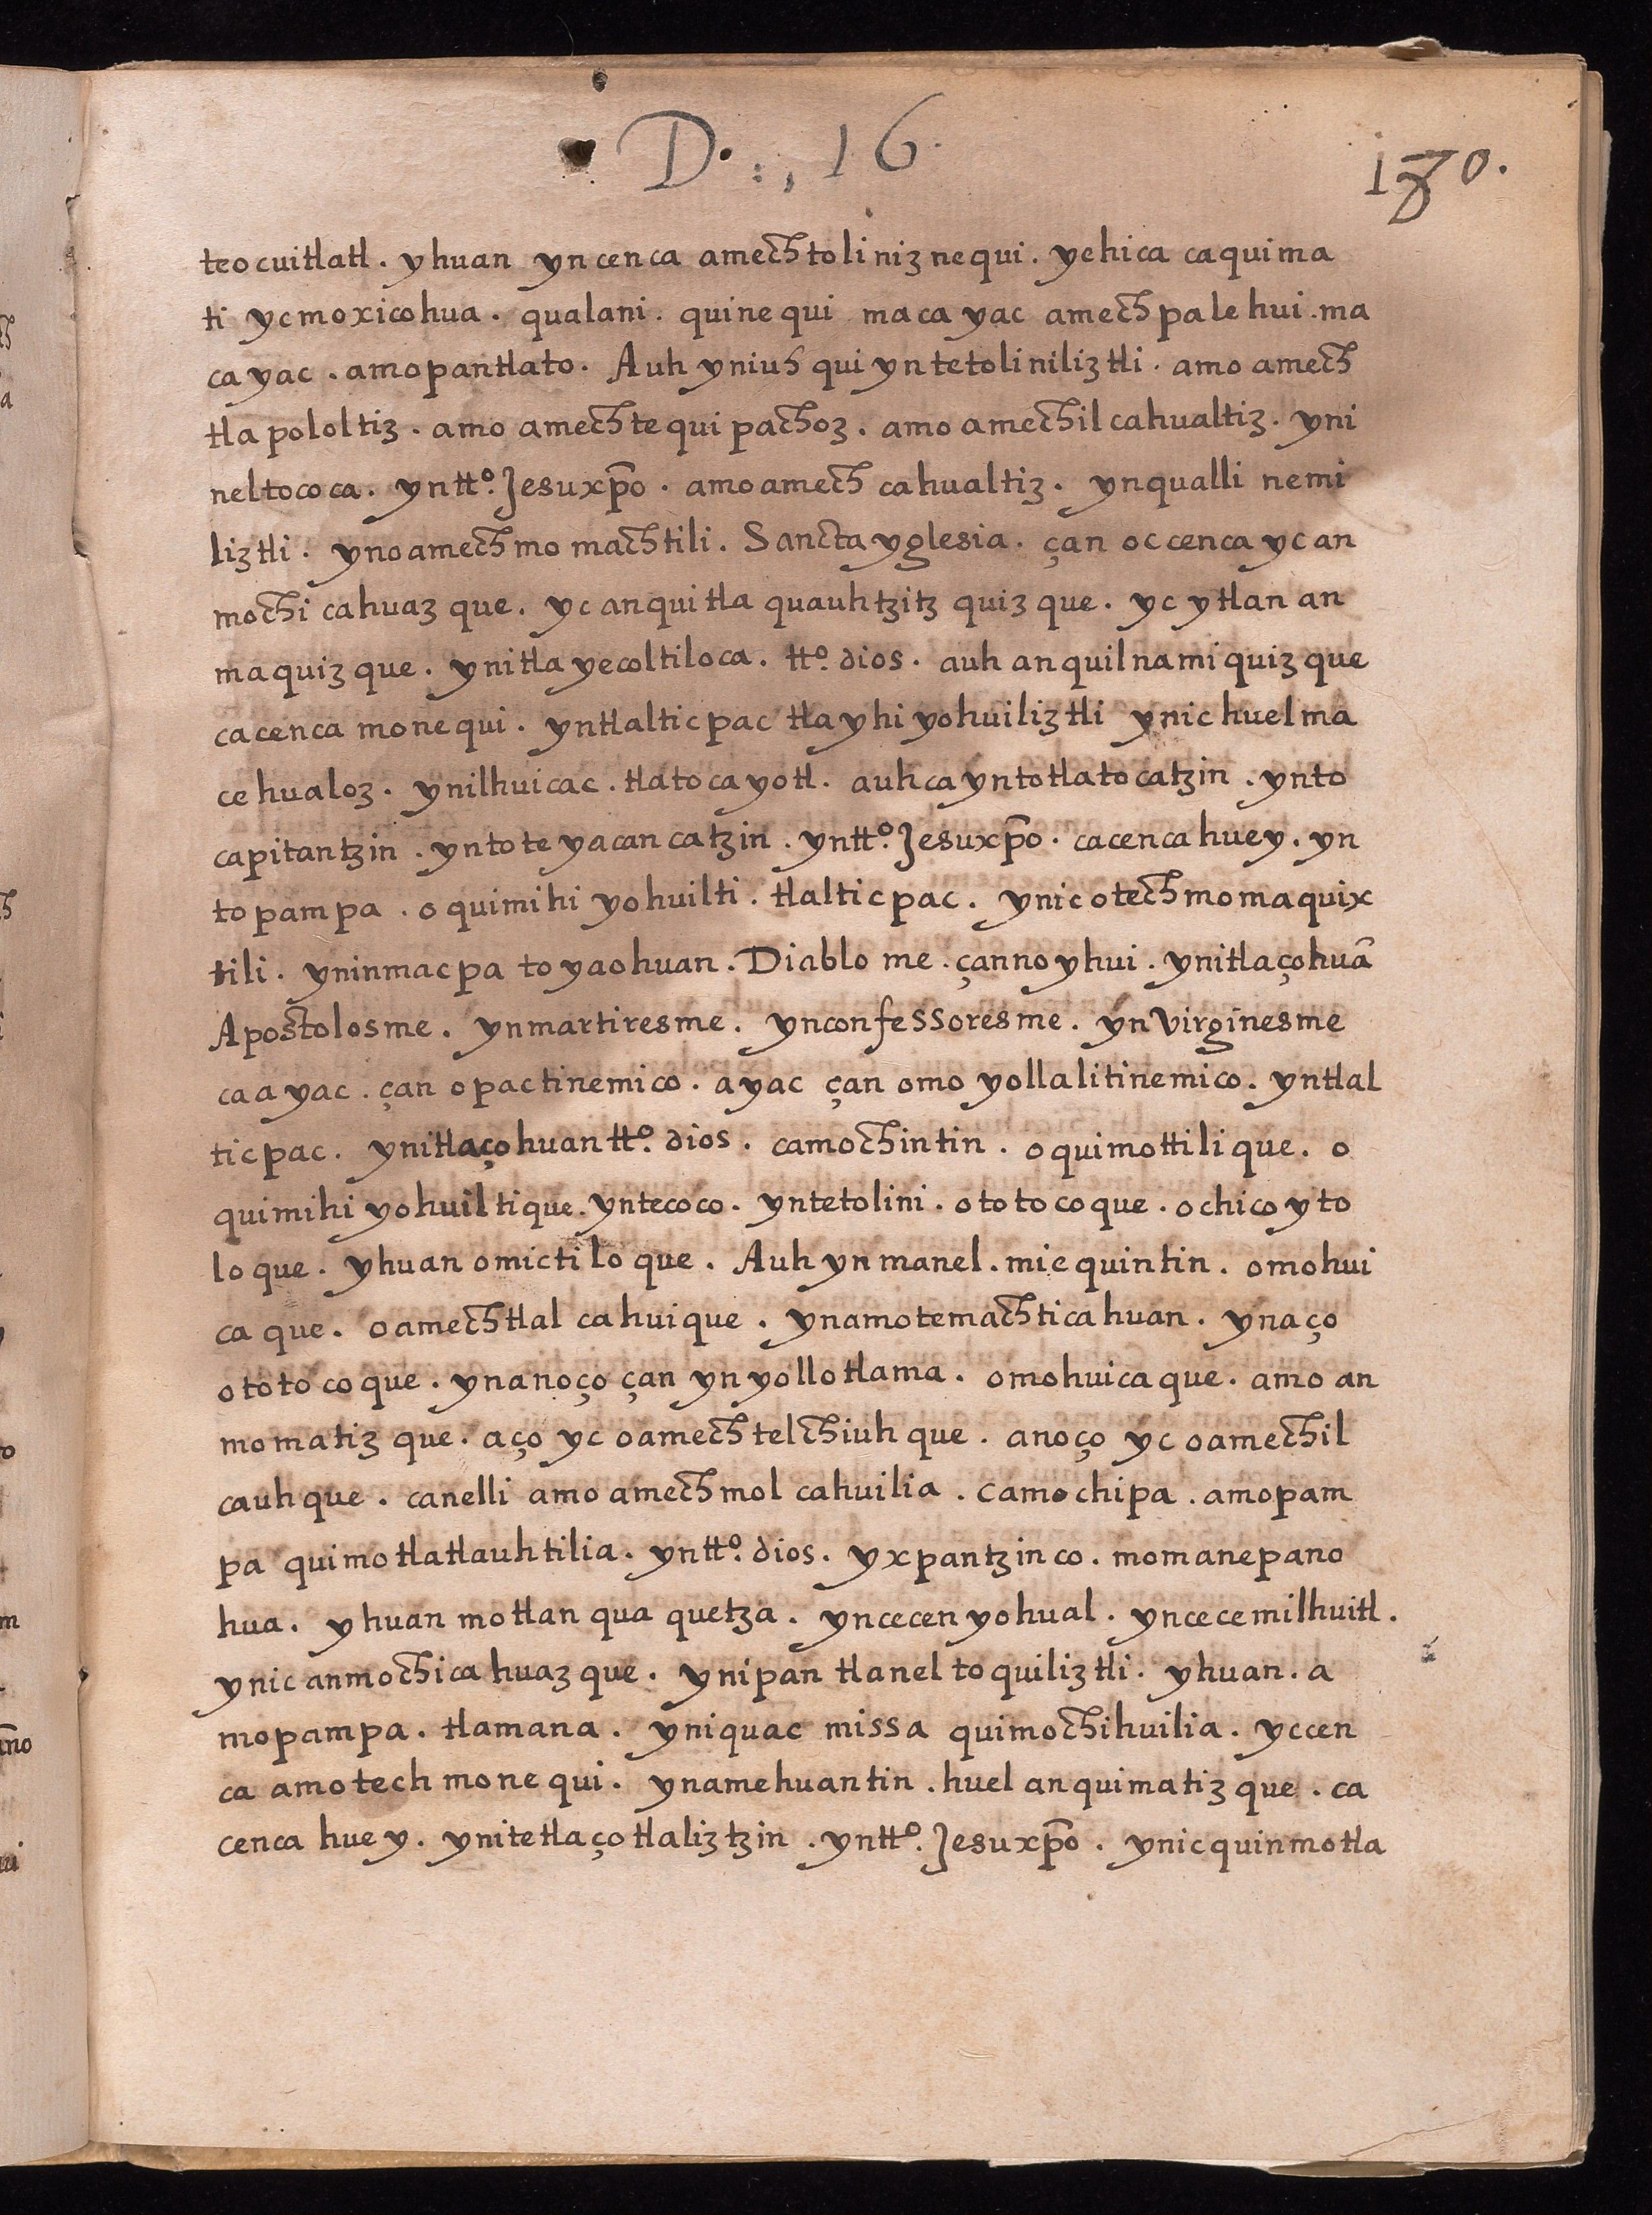 D. :, 16.
170.
teocuitlatl. yhuan yn cenca amechtoliniz nequi. yehica ca quima
ti yc moxicohua. qualani. quinequi maca yac amechpalehui. ma
ca yac. amopantlato. Auh yniuh qui yn tetoliniliztli. amo amech
tlapololtiz. amo amechtequipachoz. amo amechilcahualtiz. yni
neltococa. yntto. Jesuxpo. amo amech cahualtiz. ynqualli nemi
liztli. ynoamechmo machtili. Sancta yglesia. çan occenca yc an
mochicahuazque. yc anquitla quauhtzitzquizque. yc ytlan an
maquizque. ynitlayecoltiloca. tto. dios. auh anquilnamiquizque
ca cenca monequi. yntlalticpac tlayhiyohuiliztli ynic huel ma
cehualoz. ynilhuicac. tlatocayotl. auh ca yntotlatocatzin. ynto
capitantzin. yntoteyacancatzin. yntto. Jesuxpo. ca cenca huey. yn
topampa. oquimihiyohuilti. tlalticpac. ynic otechmomaquix
tili. yninmacpa toyaohuan. Diablome. çannoyhui. ynitlaçohuã
Apostolosme. ynmartiresme. ynconfessoresme. yn virginesme
ca ayac. çan opactinemico. ayac çan omoyollalitinemico. yntlal
ticpac. ynitlaçohuan tto. dios. camochintin. oquimottilique. o
quimihiyohuiltique. yntecoco. yntetolini. ototocoque. ochicoyto
loque. yhuan omictiloque. Auh yn manel. miequintin. omohui
caque. oamechtlalcahuique. ynamotemachticahuan. ynaço
ototocoque. ynanoço çan yn yollotlama. omohuicaque. amo an
momatizque. aço yc oamechtelchiuhque. anoço yc oamechil
cauhque. canelli amo amechmolcahuilia. camochipa. amopam
pa quimotlatlauhtilia. yntto. dios. yxpantzinco. momanepano
hua. yhuan motlanquaquetza. yncecenyohual. yncecemilhuitl.
ynic anmochicahuazque. ynipan tlaneltoquiliztli. yhuan. a
mopampa. tlamana. yniquac missa quimochihuilia. yccen
ca amotech monequi. ynamehuantin. huel anquimatizque. ca
cenca huey. ynitetlaçotlaliztzin. yntto. Jesuxpo. ynicquinmotla